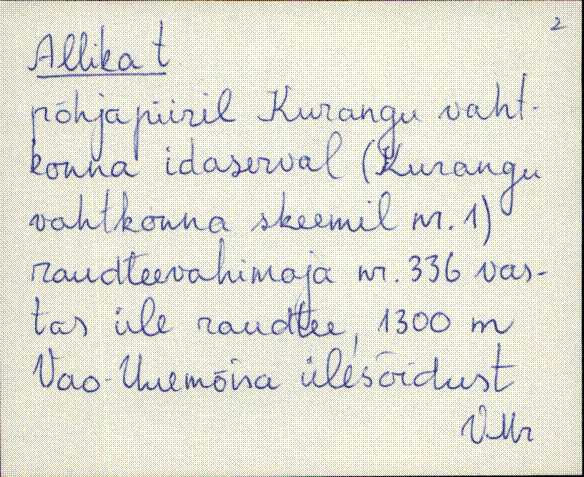 2
Allika t
põhjapiiril Kurangu vaht-
konna idaserval (Kurangu
vahtkonna skeemil nr. 1)
raudteevahimaja nr. 336 vas-
tas üle raudtee, 1300 m
Vao-Uuemõisa ülesõidust
VMr